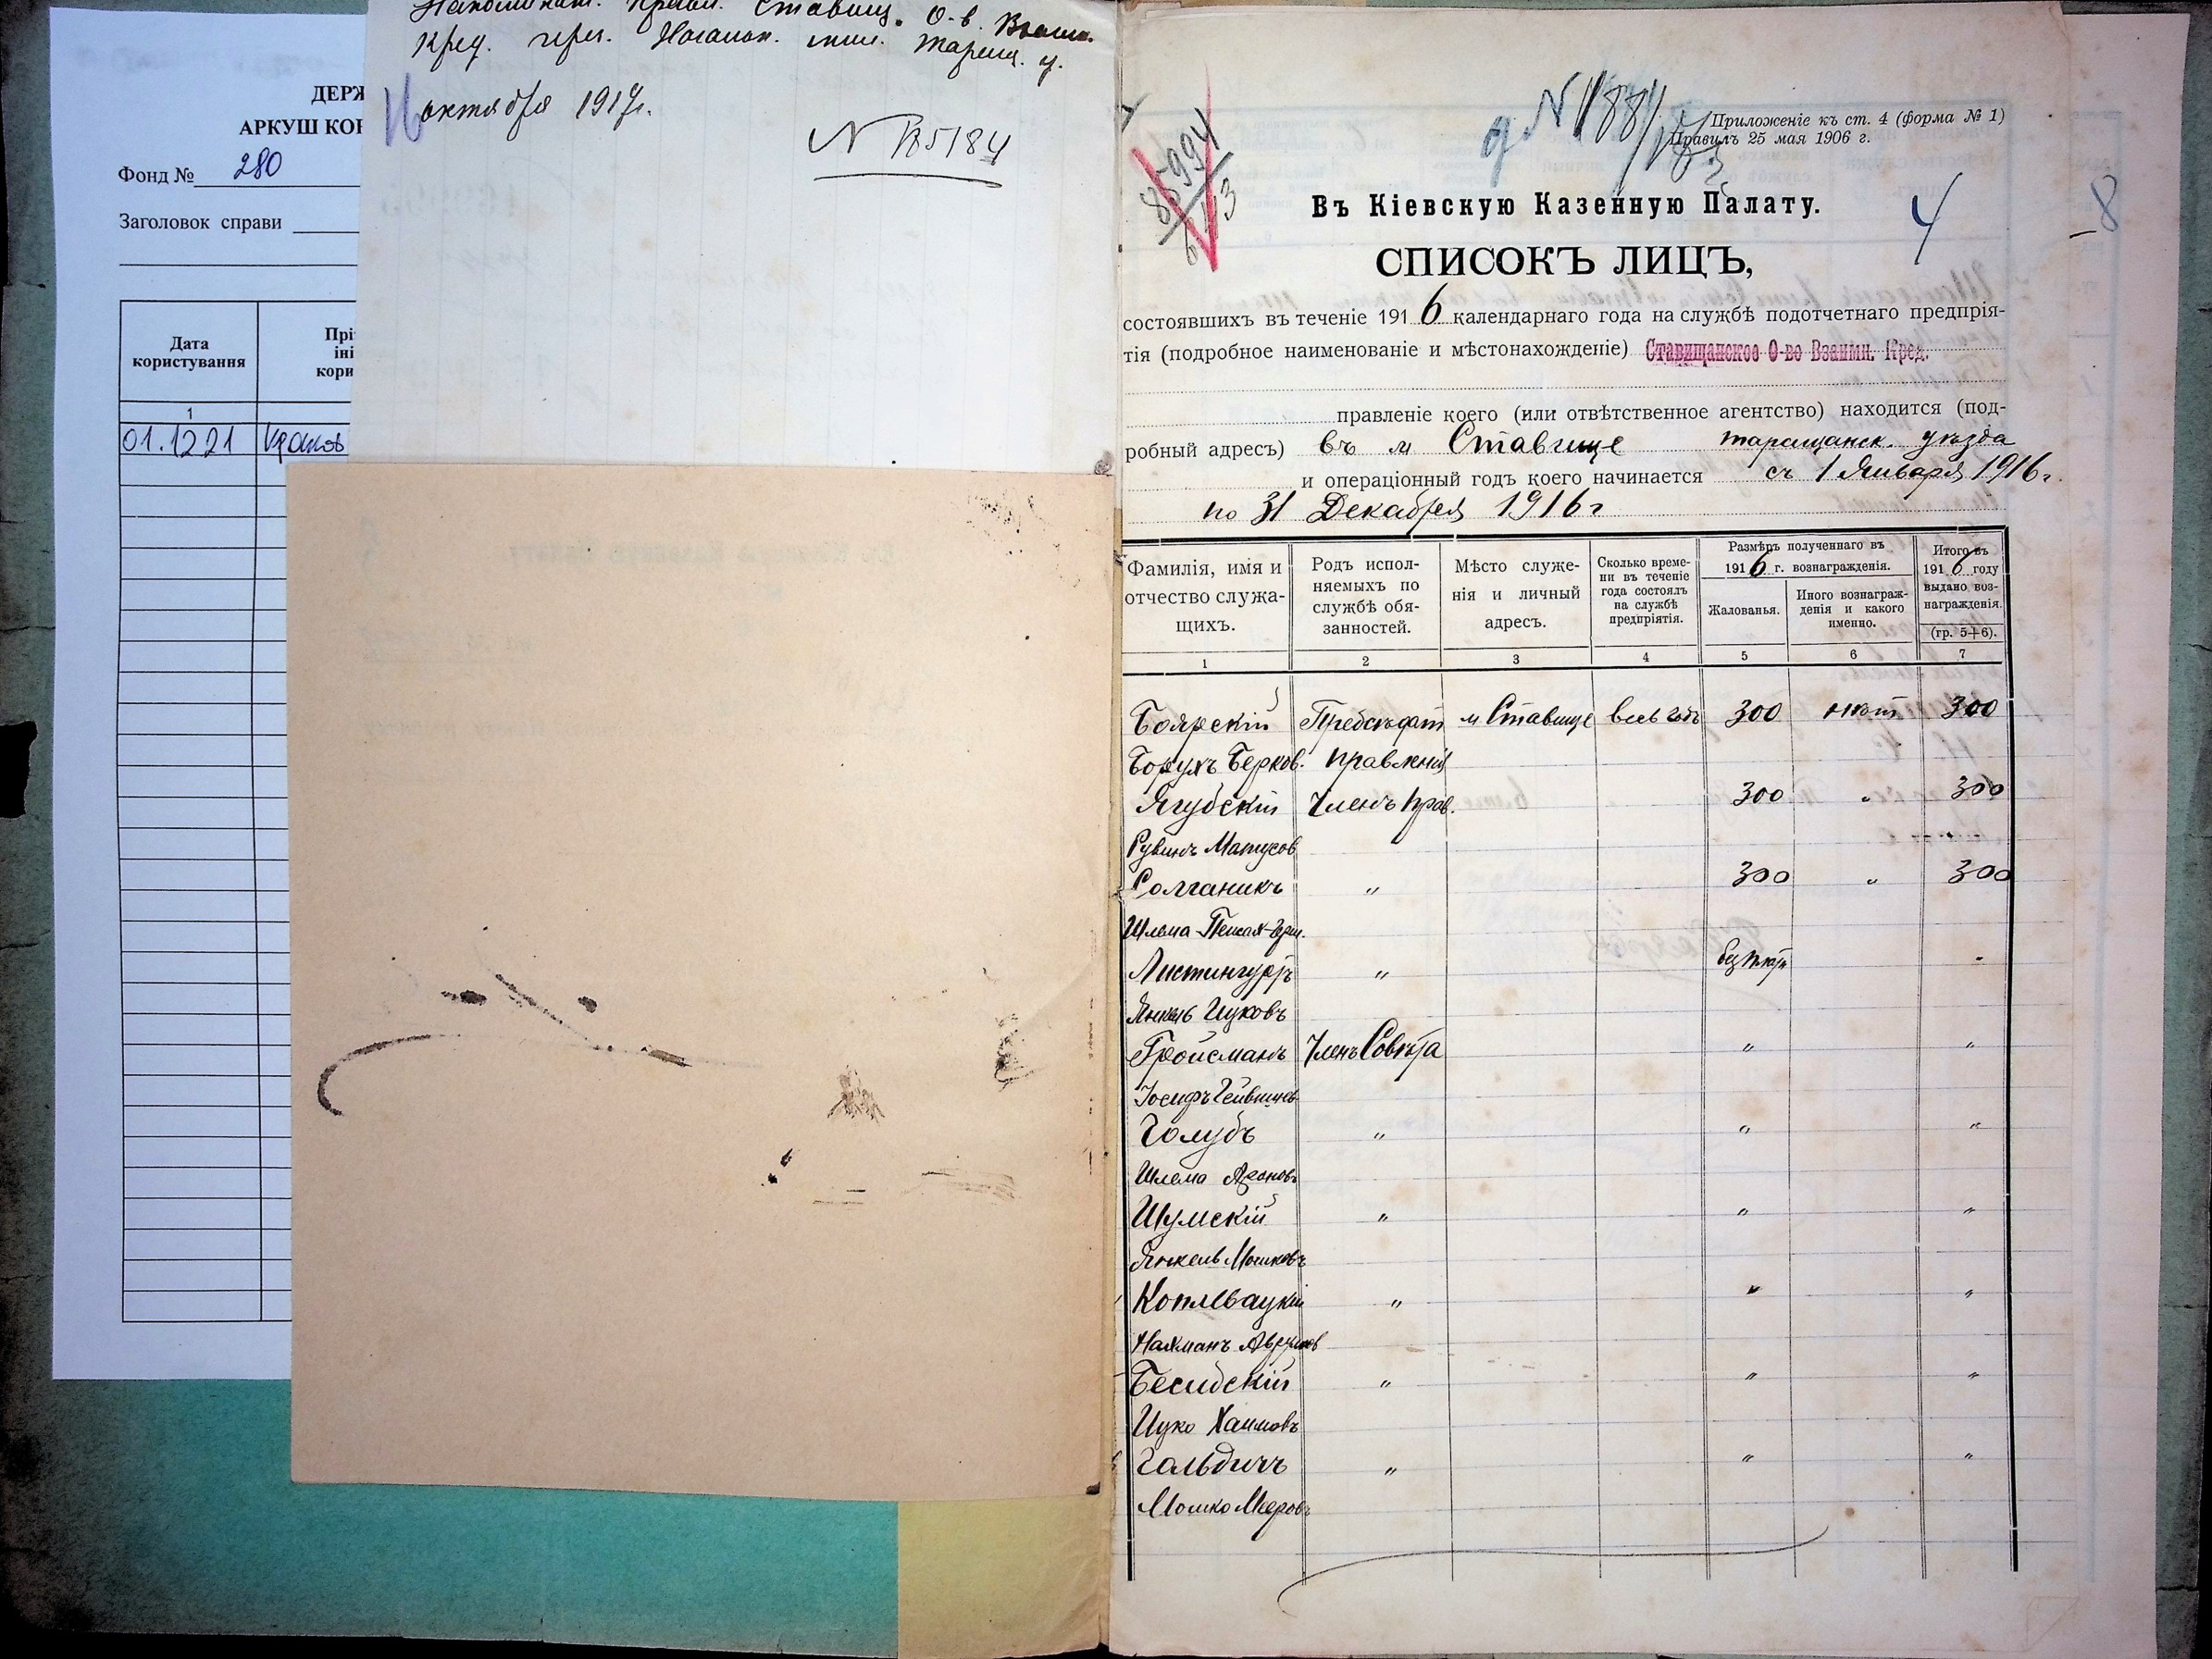 ДЕРЖ
АРКУШ КОР
Фонд № 280
Заголовок справи
Дата
користування
Прі
іні
кори
1
01.12 21
Напоминан. Правл. Ставищ. О-в. Взаим.
Кред. чрез.
октября 1917г.
N 185184
д N 1881
85994
Приложеніе къ ст. 4 (форма № 1)
Правилъ 25 мая 1906 г.
Въ Кіевскую Казенную Палату.
4
8
СПИСОКЪ ЛИЦЪ,
состоявшихъ въ теченіе 1916 календарнаго года на службѣ подотчетнаго предпрія-
тія (подробное наименованіе и мѣстонахожденіе) Ставищанское О-во Взаимн. Кред.
правленіе коего (или отвѣтственное агентство) находится (под-
робный адресъ) въ м Ставище таращанск. уѣзда
и операціонный годъ коего начинается съ 1 Января 1916 г.
по 31 Декабря 1916 г
Фамилія, имя и
отчество служа-
щихъ.
Родъ испол-
няемыхъ по
службѣ обя-
занностей.
Мѣсто служе-
нія и личный
адресъ.
Сколько време-
ни въ теченіе
года состоялъ
на службѣ
предпріятія.
Размѣръ полученнаго въ
1916 г. вознагражденія.
Жалованья.
Иного вознаграж-
денія и какого
именно.
Итого въ
1916 году
выдано воз-
награжденія.
(гр. 5+6).
1 2 3 4 5 6 7
Боярскій Предсѣдат м Ставище весь годъ 300 нѣтъ 300
Борухъ Берков. Правленія
Ягубскій Членъ Прав. 300 " 300
Рувинъ Матусов
Солганикъ " 300 " 300
Шлема-Пейсах-Герш.
Листингуртъ " безплат -
Янкель Ицковъ
Гройсманъ Членъ Совѣта " "
Іосифъ Лейбишев
Голубъ " " "
Шлема Ароновъ
Шумскій " " "
Янкель Мошковъ
Котлевацкій " " "
Нахманъ Аврумов
Бесидскій " " "
Ицко Хаимовъ
Гольдичъ " " "
Мошко Меровъ